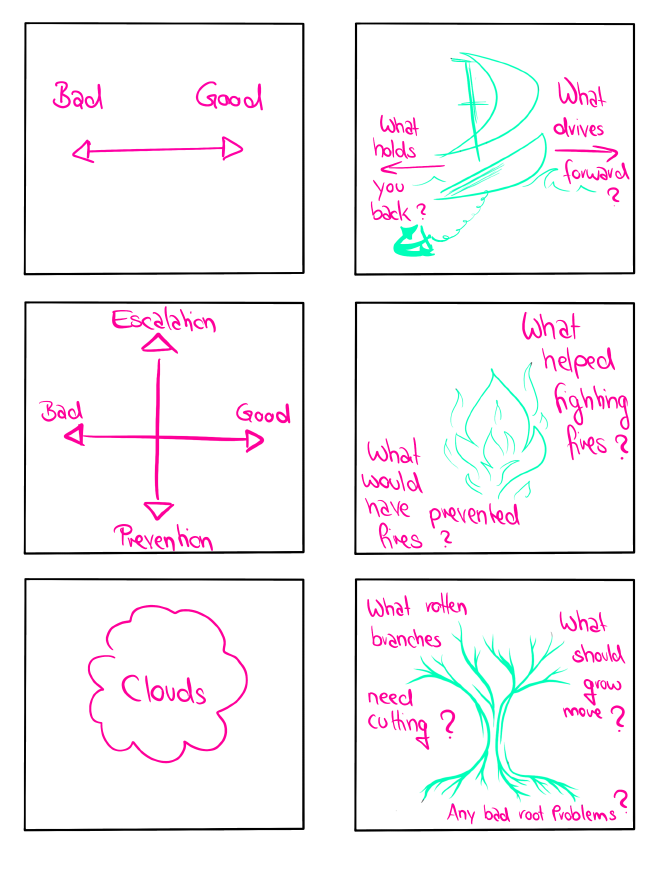 Bad
Good
What
holds
you
back?
What
drives
forward
?
Escalation
Bad
Good
Prevention
What
helped
fighting
fires?
What
would
have prevented
fires ?
Clouds
What rotten
branches
need
cutting?
What
should
grow
more?
Any bad root problems?